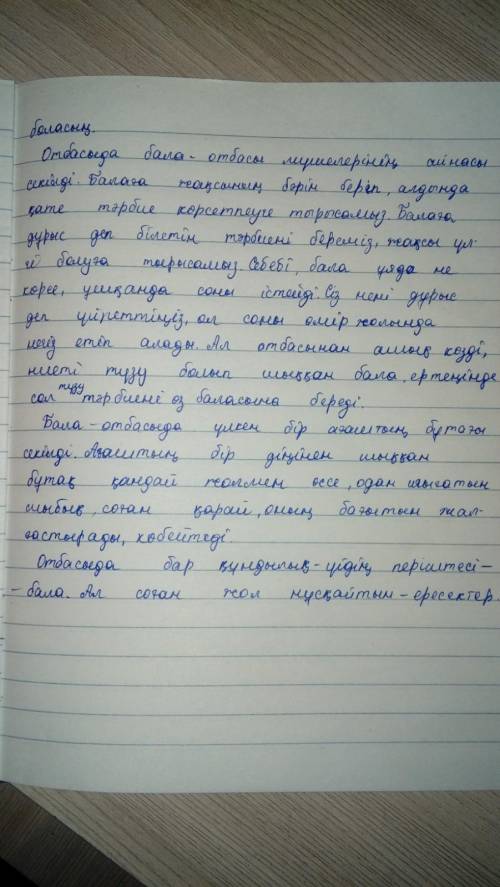 боласың.
Отбасыда бала - отбасы мүшелерінің айнасы
секілді. Балаға жақсының бәрін беріп, алдында
қате тәрбие көрсетпеуге тырысамыз. Балаға
дұрыс деп білетін тәрбиені береміз, жақсы үл-
гі болуға тырысамыз. Себебі, бала ұяда не
көрсе, ұшқанда соны істейді. Сіз нені дұрыс
деп үйреттіңіз, ол соны өмір жолында
негіз етіп алады. Ал отбасынан ашық көзді,
ниеті түзу болып шыққан бала, ертеңінде
сол түзу тәрбиені өз баласына береді.
Бала - отбасыда үлкен бір ағаштың бұтағы
секілді. Ағаштың бір діңінен шыққан
бұтақ қандай жолмен өссе, одан шығатын
шыбық, соған қарай, оның бағытын жал-
ғастырады, көбейтеді.
Отбасыда бар құндылық - үйдің періштесі -
- бала. Ал соған жол нұсқайтын - ересектер.